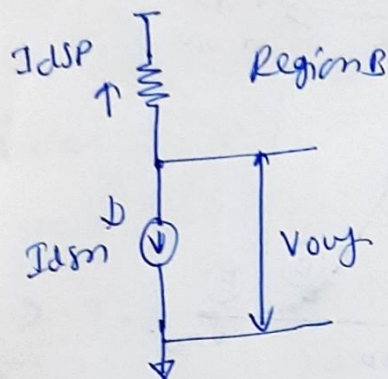 Idsp
Region B
Idsn
Vout